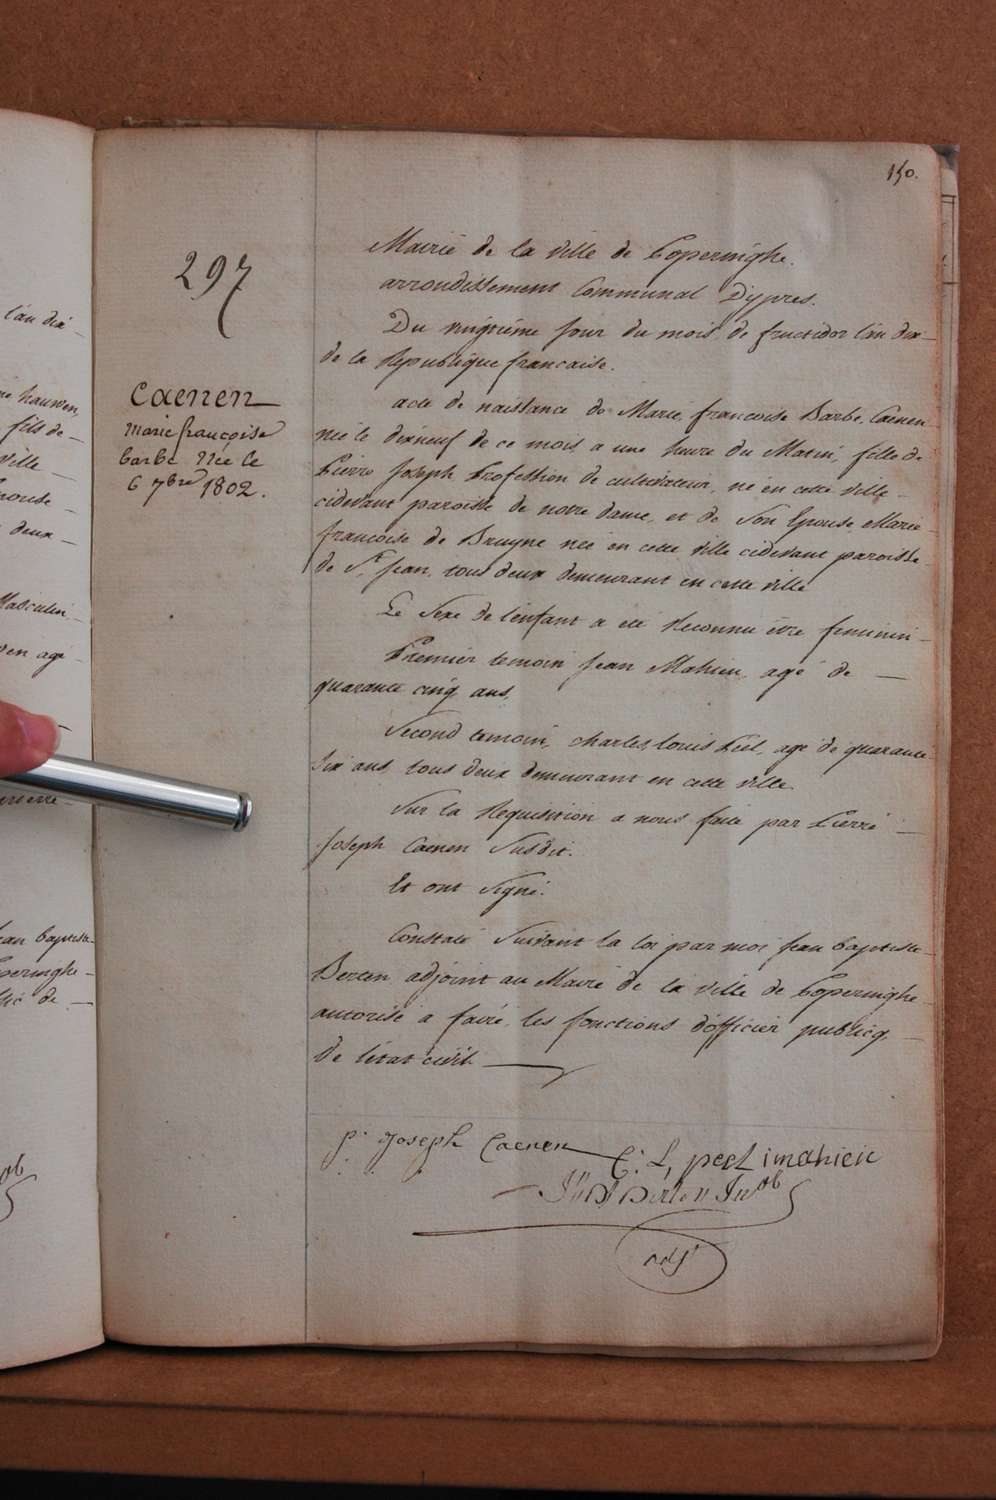 150.
297
Caenen
marie françoise
barbe Née le
6 7bre 1802.
Mairié de la ville de Poperinghe.
arrondissement Communal D'ypres.
Du vingtième jour du mois de fructidor l'an dix
de la Republique francaise.
acte de naissance de Marie francoise Barbe Caenen
née le dixneuf de ce mois a une heure du Matin, fille de
Pierre Joseph Profession de cultivateur, né en cette ville
cidevant paroisse de notre dame, et de Son Epouse Marie
francoise de Bruyne née en cette ville cidevant paroisse
de St. Jean, tous deux demeurant en cette ville
Le Sexe de l'enfant a été Reconnu être feminin
Premier temoin Jean Mahieu, agé de
quarante cinq ans,
Second temoin, charles louis Peel, agé de quarante
Six ans, tous deux demeurant en cette ville.
Sur la Requisition a nous faite par Pierre
Joseph Caenen Susdit.
Et ont Signé.
Constaté Suivant la loi par moi Jean baptiste
Berten adjoint au Maire de la ville de Poperinghe
autorisé a faire les fonctions d'officier publicq
de l'état civil
p. Joseph Caenen
C. L. peel j mahieu
Berten
adjt
l'an dix
hauwen,
fils de
ville
deux
Masculin
agé
baptiste
de